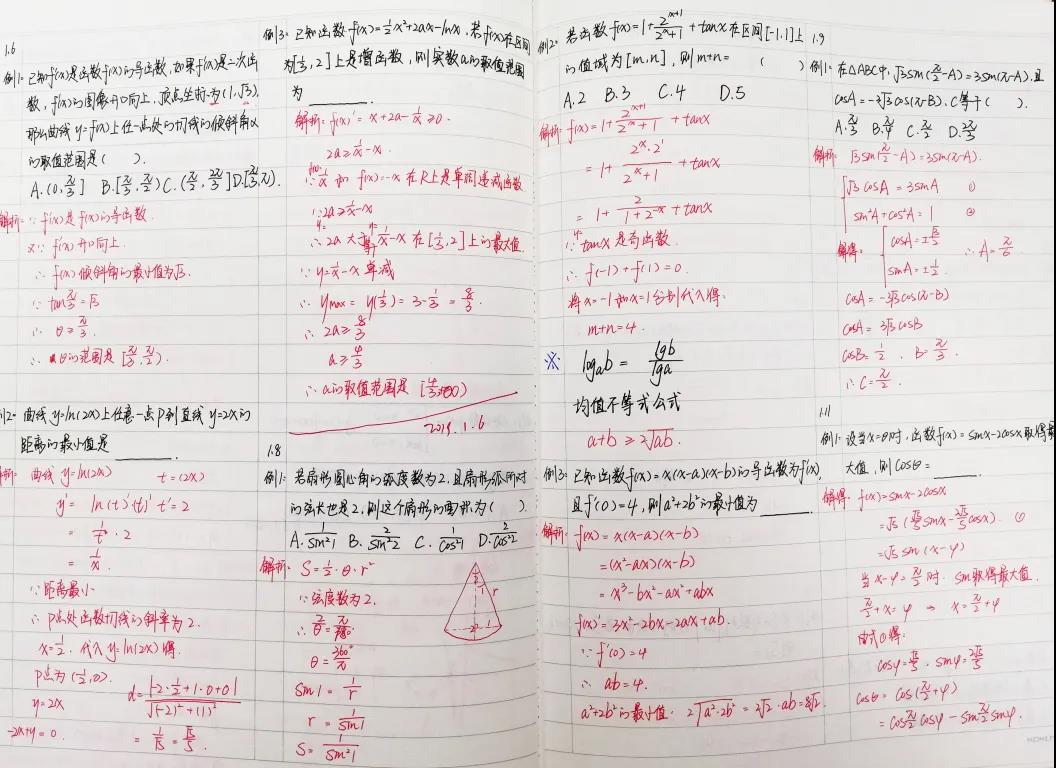 1.6
例1: 已知f'(x)是函数f(x)的导函数,如果f'(x)是二次函
数, f'(x)的图象开口向上, 顶点坐标为(1,√3),
那么曲线y=f(x)上任一点处的切线的倾斜角α
的取值范围是( ).
A.(0,π/3] B.[π/3,π/2) C.(π/2,2π/3] D.[π/3,π).
解析: ∵f'(x)是f(x)的导函数.
又∵f'(x)开口向上.
∴f(x)倾斜角的最小值为√3.
∵tanπ/3=√3
∴θ≥π/3.
∴θ的范围是[π/3,π/2).
例2: 曲线y=ln(2x)上任意一点P到直线y=2x的
距离的最小值是 ______.
解析: 曲线y=ln(2x) t=(2x)
y'= ln(t)'(t)' t'=2
= 1/t·2
= 1/x.
∵距离最小
∴P点处函数切线的斜率为2.
x=1/2. 代入y=ln(2x)得.
P点为(1/2,0).
y=2x
-2x+y=0.
d=|-2·1/2+1·0+0|/√(-2)²+(1)²
=1/√5=√5/5.
例3: 已知函数f(x)=1/2x²+2ax-lnx,若f(x)在区间
[1/3,2]上是增函数,则实数a的取值范围
为 ______.
解析: f(x)'=x+2a-1/x≥0.
2a≥1/x-x.
∵1/x和f(x)=-x在R上是单调递减函数
∴2a≥1/x-x
∴2a大于等于y=1/x-x在[1/3,2]上的最大值.
∵y=1/x-x单减
∴ymax=y(1/3)=3-1/3=8/3.
∴2a≥8/3
a≥4/3
∴a的取值范围是[4/3,+∞)
2019.1.6
1.8
例1: 若扇形圆心角的弧度数为2,且扇形弧所对
的弦长也是2,则这个扇形的面积为( ).
A.1/sin²1 B.2/sin²2 C.1/cos²1 D.2/cos²2
解析: S=1/2·θ·r²
∵弧度数为2.
∴2/θ=π/180°
θ=360°/π
sin1=1/r
r=1/sin1
S=1/sin²1
例2: 若函数f(x)=1+2^(x+1)/(2^x+1)+tanx在区间[-1,1]上
的值域为[m,n],则m+n= ( )
A.2 B.3 C.4 D.5
解析: f(x)=1+2^(x+1)/(2^x+1)+tanx
=1+2^x·2^1/(2^x+1)+tanx
=1+2/(1+2^-x)+tanx
∵y=tanx是奇函数.
∴f(-1)+f(1)=0.
将x=-1和x=1分别代入得.
m+n=4.
※ log_a b=lgb/lga
均值不等式公式
a+b≥2√ab.
例3: 已知函数f(x)=x(x-a)(x-b)的导函数为f'(x),
且f'(0)=4,则a²+2b²的最小值为 ______.
解析: f(x)=x(x-a)(x-b)
=(x²-ax)(x-b)
=x³-bx²-ax²+abx
f(x)'=3x²-2bx-2ax+ab.
∵f'(0)=4
∴ab=4.
a²+2b²的最小值. 2√a²·2b²=2√2·ab=8√2.
1.9
例1: 在△ABC中,√3sin(π/2-A)=3sin(π-A),且
cosA=-√3cos(π-B). C等于( ).
A.π/3 B.π/4 C.π/2 D.2π/3
解析: √3sin(π/2-A)=3sin(π-A).
√3cosA=3sinA ①
sin²A+cos²A=1 ②
解得: cosA=±√3/2
sinA=±1/2. ∴A=π/6
cosA=-√3cos(π-B)
cosA=√3cosB
cosB=1/2. B=π/3.
∴C=π/2.
1.11
例1: 设当x=θ时,函数f(x)=sinx-2cosx取得最
大值,则cosθ= ______.
解得: f(x)=sinx-2cosx
=√5(√5/5sinx-2√5/5cosx). ①
=√5sin(x-φ)
当x-φ=π/2时. sin取得最大值.
π/2+x=φ → x=π/2+φ
由式①得:
cosφ=√5/5. sinφ=2√5/5
cosθ=cos(π/2+φ)
=cosπ/2cosφ-sinπ/2sinφ.